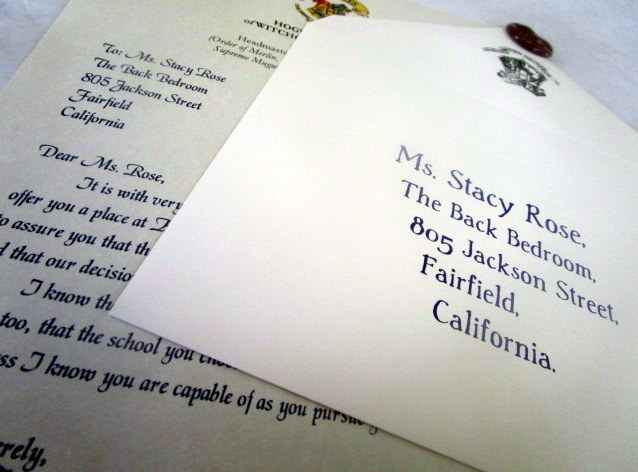 HOG
of WITCH
Headmast
(Order of Merlin,
Supreme Mugw
To: Ms. Stacy Rose
The Back Bedroom
805 Jackson Street
Fairfield
California
Dear Ms. Rose,
It is with very
offer you a place at
to assure you that th
d that our decisio
I know th
too, that the school you
ss I know you are capable of as you pursu
rely,
Ms. Stacy Rose,
The Back Bedroom,
805 Jackson Street,
Fairfield,
California.